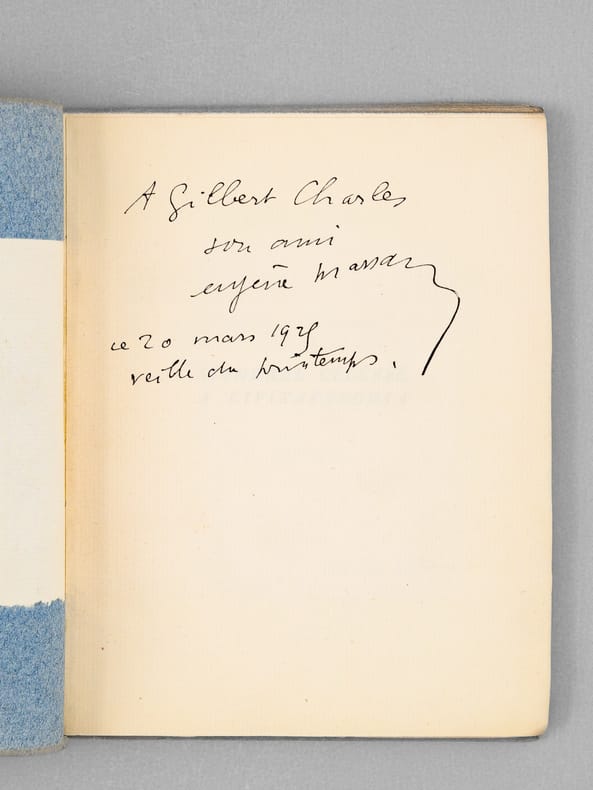 A Gilbert Charles
son ami
eugène marsan
ce 20 mars 1925
veille du printemps.